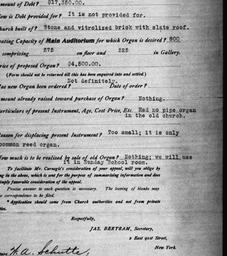 mount of Debt? $17,350.00.
ow is Debt provided for? It is not provided for.
hurch Built of? Stone and vitrolized brick with slate roof.
eating Capacity of Main Auditorium for which Organ is desired? 600
comprising 375 on floor and 225 in Gallery.
rice of proposed Organ? $4,500.00.
(Form should not be returned till this has been inquired into and settled)
Not definitely.
as new Organ been ordered? Date of order?
mount already raised toward purchase of Organ? Nothing.
articulars of present Instrument, Age, Cost Price, Etc. Had no pipe organ
in the old church.
eason for displacing present Instrument? Too small; it is only
common reed organ.
ow much is to be realized by sale of old Organ? Nothing; we will use
it in Sunday School room.
To facilitate Mr. Carnegie's consideration of your appeal, will you oblige by
ing in the above, which is sent for the purpose of summarizing information and thus
simply favorable consideration of the appeal.
Precise answer to each question is necessary. The leaving of blanks may
correspondence to be filed.
* Application should come from Church authorities and not from private
ties.
Respectfully,
JAS. BERTRAM, Secretary,
2 East 91st Street,
New York.
W. A. Schutte,